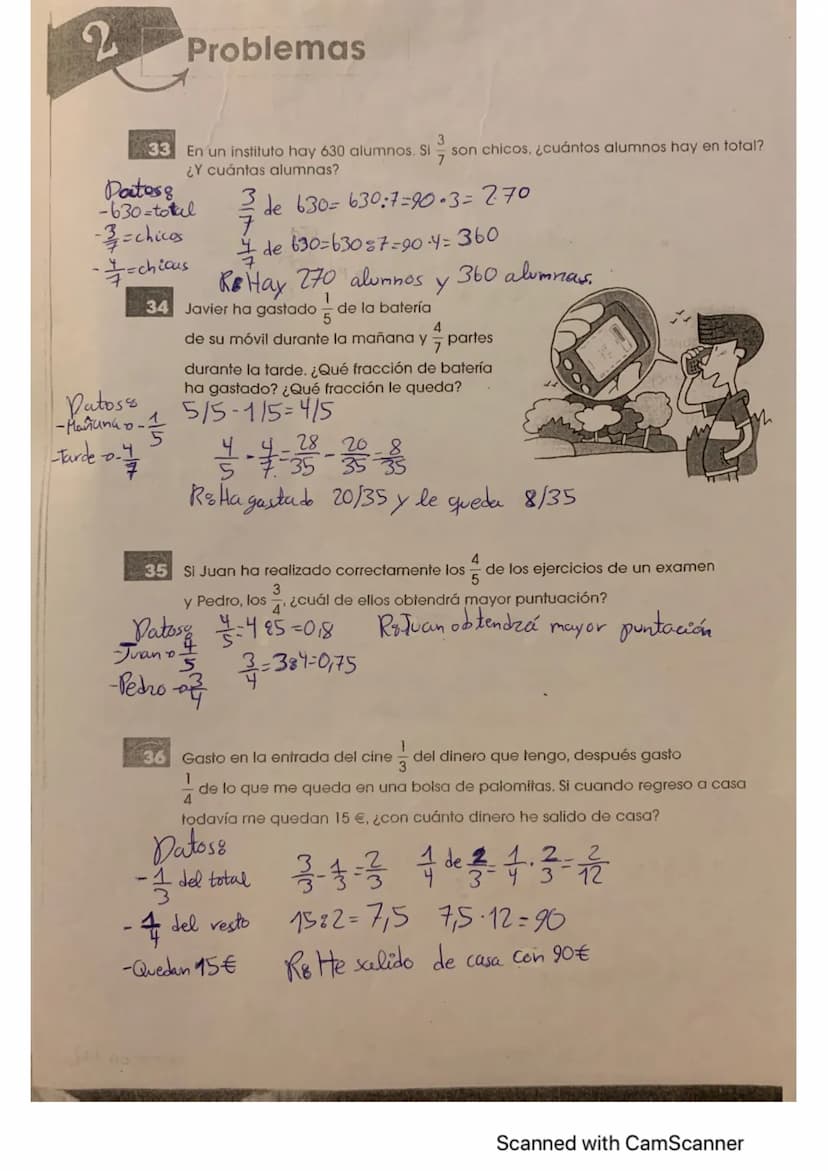 2 Problemas
33 En un instituto hay 630 alumnos. Si 3/7 son chicos, ¿cuántos alumnos hay en total?
¿Y cuántas alumnas?
Datos:
-630=total
-3/7=chicos
-4/7=chicas
3/7 de 630= 630:7=90·3=270
4/7 de 630=630:7=90·4=360
R: Hay 270 alumnos y 360 alumnas.
34 Javier ha gastado 1/5 de la batería
de su móvil durante la mañana y 4/7 partes
durante la tarde. ¿Qué fracción de batería
ha gastado? ¿Qué fracción le queda?
Datos:
-Mañana→-1/5
-Tarde→-4/7
5/5-1/5=4/5
4/5-4/7=28/35-20/35=8/35
R: Ha gastado 20/35 y le queda 8/35
35 Si Juan ha realizado correctamente los 4/5 de los ejercicios de un examen
y Pedro, los 3/4, ¿cuál de ellos obtendrá mayor puntuación?
Datos:
-Juan→4/5
-Pedro→3/4
4/5=4:5=0,8
3/4=3:4=0,75
R: Juan obtendrá mayor puntación
36 Gasto en la entrada del cine 1/3 del dinero que tengo, después gasto
1/4 de lo que me queda en una bolsa de palomitas. Si cuando regreso a casa
todavía me quedan 15 €, ¿con cuánto dinero he salido de casa?
Datos:
-1/3 del total
-1/4 del resto
-Quedan 15€
3/3-1/3=2/3 1/4 de 2/3=1/4·2/3=2/12
15:2=7,5 7,5·12=90
R: He salido de casa con 90€
Scanned with CamScanner